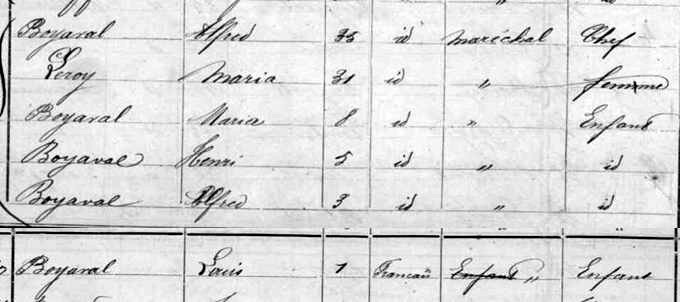 Boyaval Alfred 35 id maréchal Chef
Leroy Maria 31 id " femme
Boyaval Maria 8 id " Enfant
Boyaval Henri 5 id " id
Boyaval Alfred 3 id " id
" "
Boyaval Louis 1 Français Enfant " Enfant